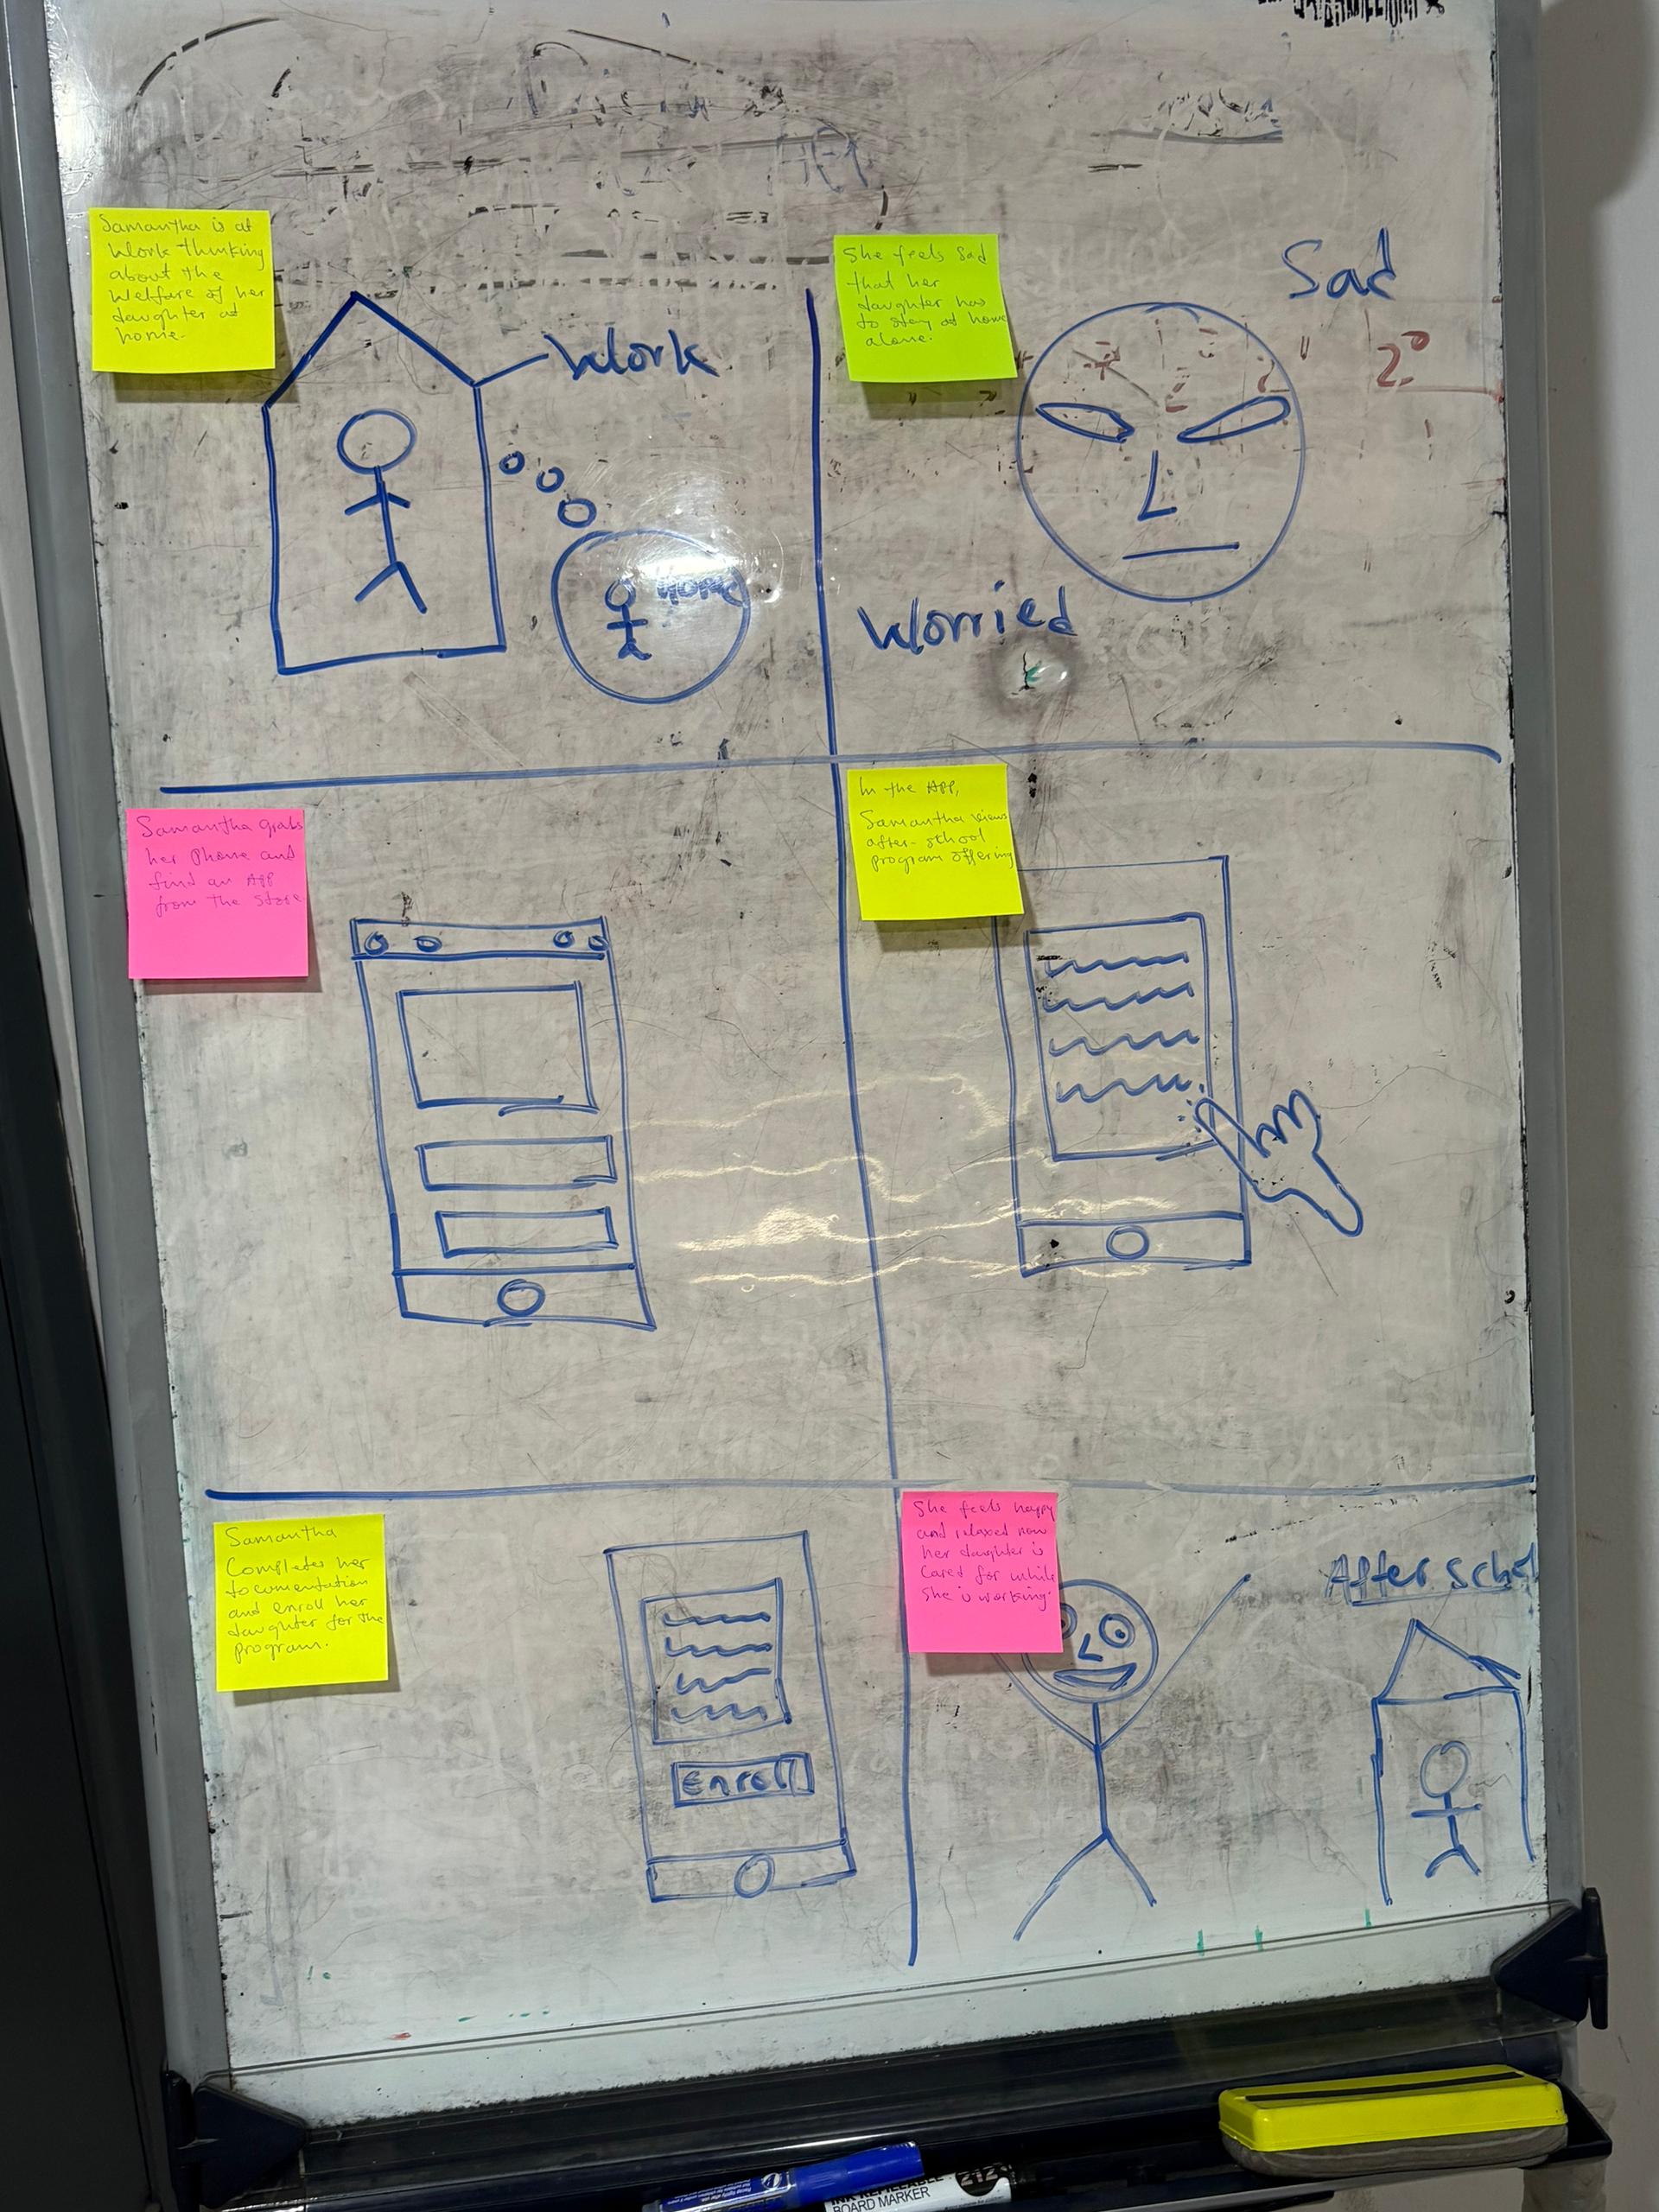 Samantha is at
Work thinking
about the
Welfare of her
daughter at
home.
Work
Home
She feels Sad
that her
daughter has
to stay at home
alone.
Sad
2°
Worried
Samantha grabs
her Phone and
find an APP
from the store
In the APP,
Samantha views
after-school
program offering
Samantha
Completes her
documentation
and enroll her
daughter for the
program.
Enroll
She feels happy
and relaxed now
her daughter is
Cared for while
She is working.
After school
INK REFILLABLE
BOARD MARKER